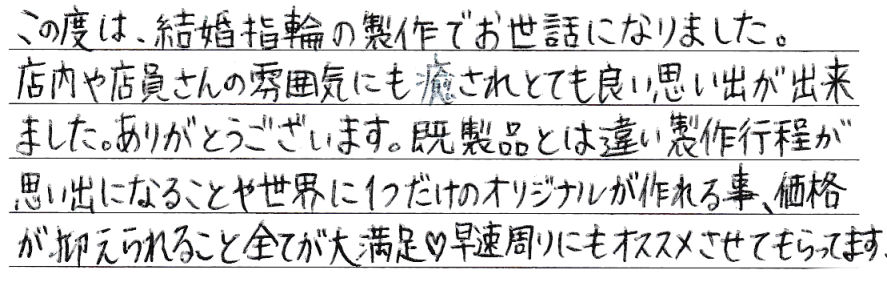 この度は、結婚指輪の製作でお世話になりました。
店内や店員さんの雰囲気にも癒されとても良い思い出が出来
ました。ありがとうございます。既製品とは違い製作行程が
思い出になることや世界に1つだけのオリジナルが作れる事、価格
が抑えられること全てが大満足♡早速周りにもオススメさせてもらってます。